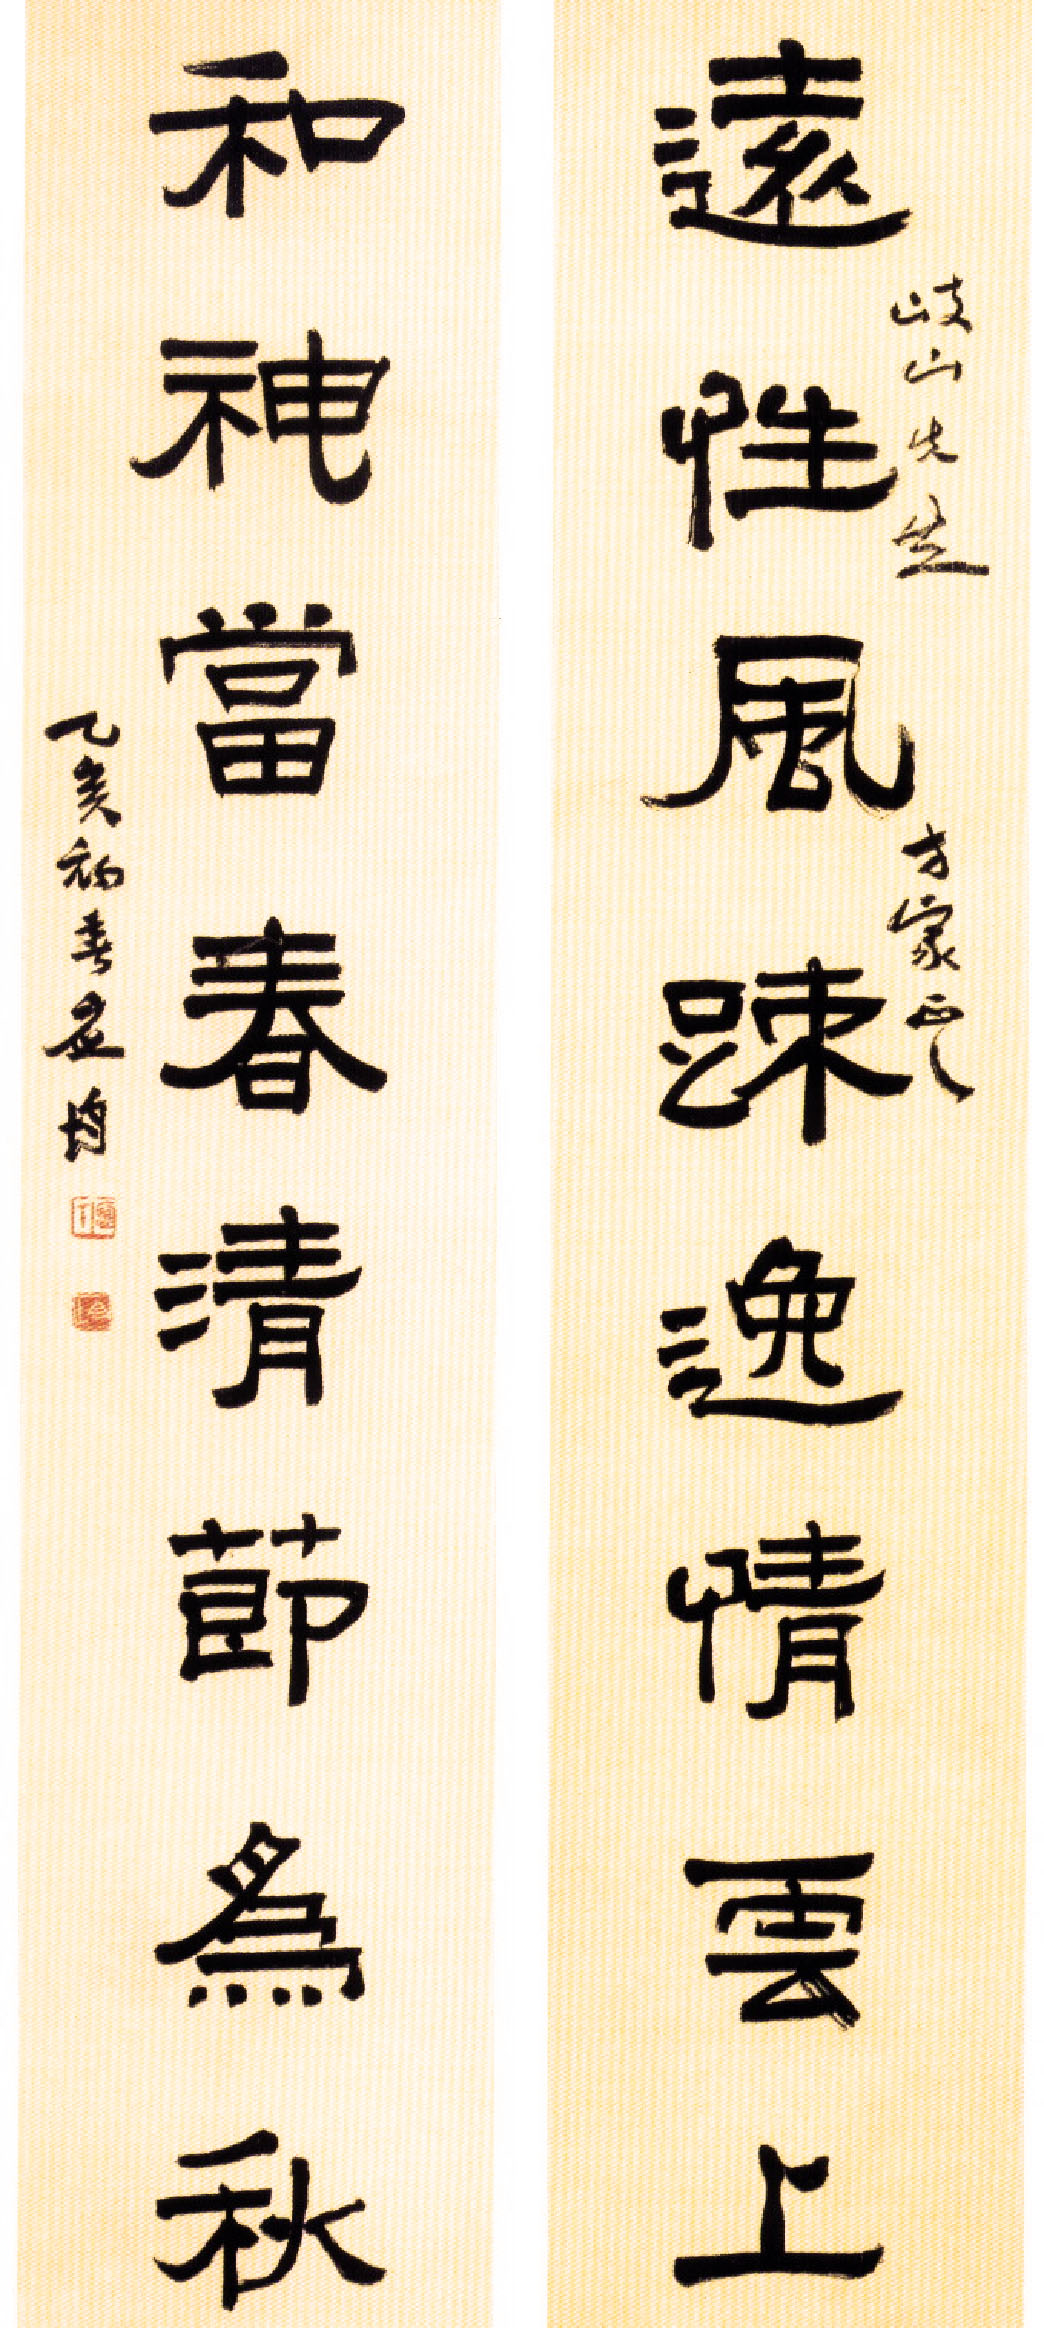 遠性風疎逸情雲上
岐山先生
方家正之
和神當春清節爲秋
乙亥初春孟均